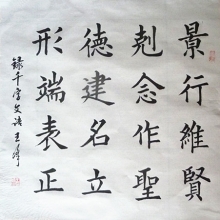 景行維賢
剋念作聖
德建名立
形端表正
錄千字文語